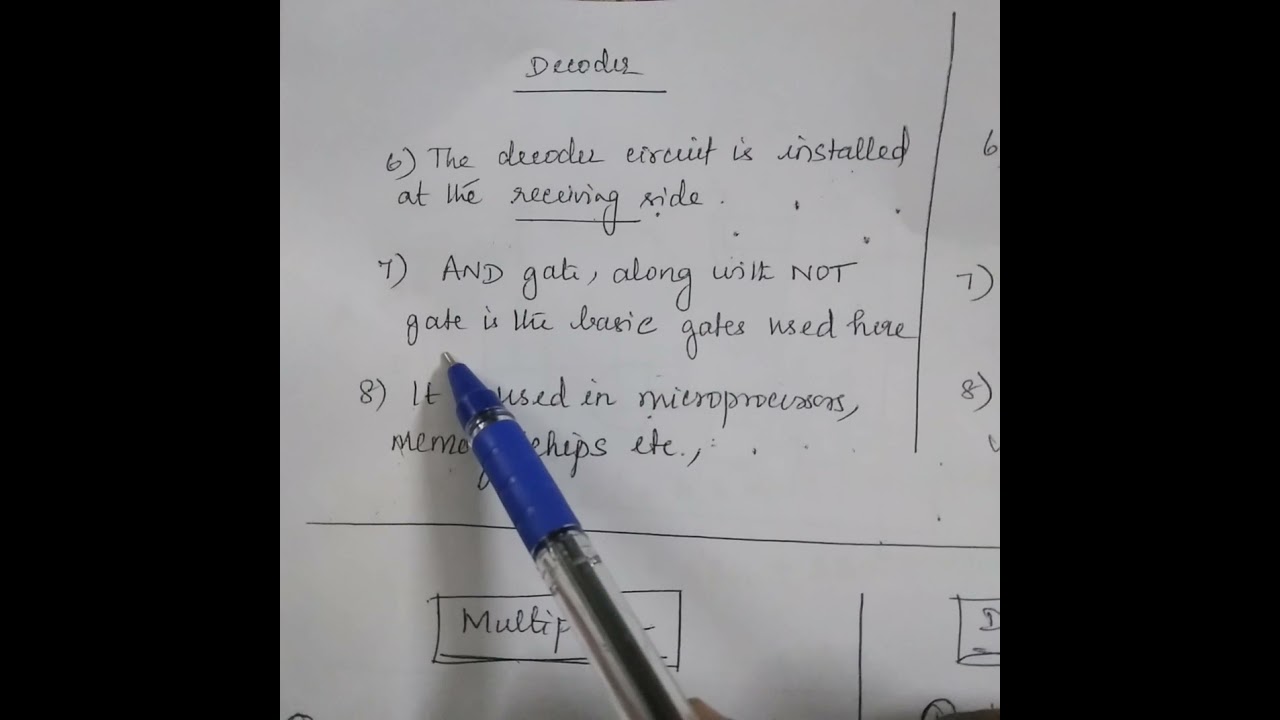 Decoder
6) The decoder circuit is installed
at the receiving side.
7) AND gate, along with NOT
gate is the basic gates used here
8) It used in microprocessors,
chips etc.,
6
7)
8)
D